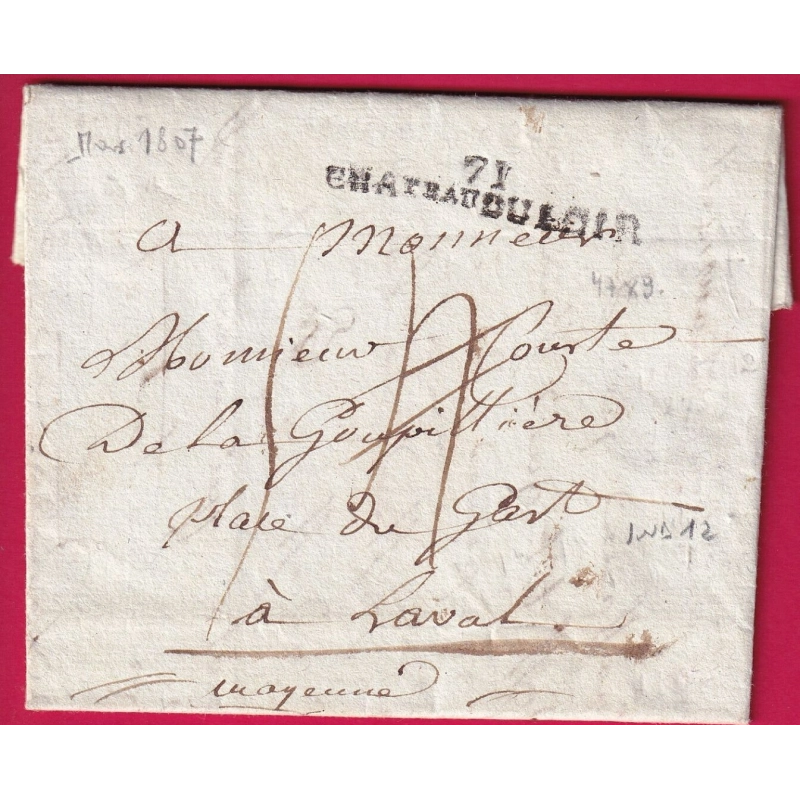 Mars 1807
71
CHATEAUDULOIR
a Monsieur
47x9.
Monsieur Courte
De la Goupillière
12
place du Gast
Ind 12
à Laval
mayenne